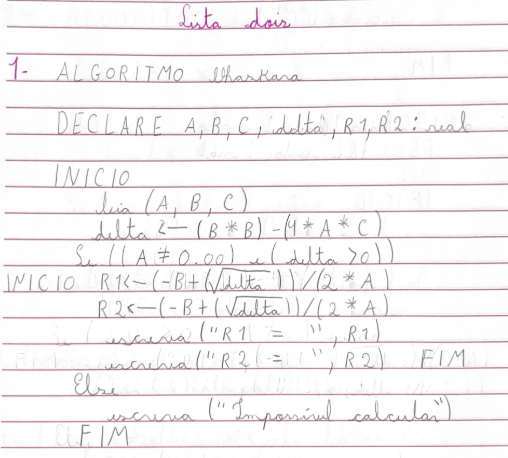 Lista dois
1- ALGORITMO Bhaskara
DECLARE A, B, C, delta, R1, R2: real
INICIO
leia (A, B, C)
delta <— (B * B) - (4 * A * C)
Se ((A ≠ 0.00) e (delta > 0))
INICIO R1 <— (-B + (√delta)) / (2 * A)
R2 <— (-B + (√delta)) / (2 * A)
escreva ("R1 = ", R1)
escreva ("R2 = ", R2) FIM
Else
escreva ("Impossível calcular")
FIM